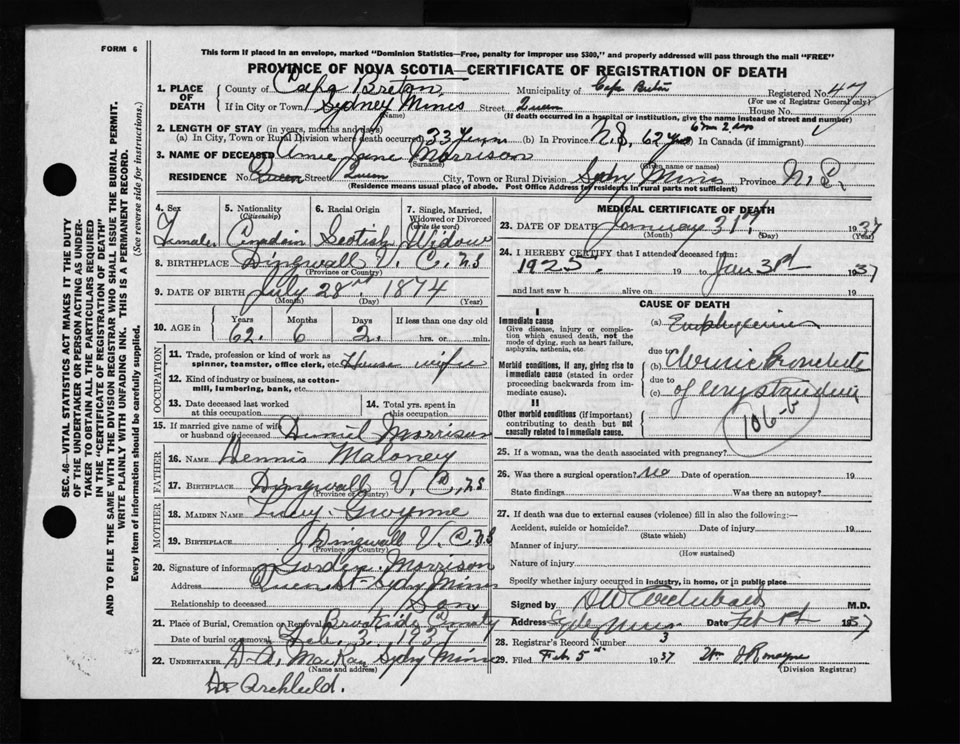 FORM 6
This form if placed in an envelope, marked "Dominion Statistics—Free, penalty for improper use $300," and properly addressed will pass through the mail "FREE"
PROVINCE OF NOVA SCOTIA—CERTIFICATE OF REGISTRATION OF DEATH
SEC. 46—VITAL STATISTICS ACT MAKES IT THE DUTY
OF THE UNDERTAKER OR PERSON ACTING AS UNDER-
TAKER TO OBTAIN ALL THE PARTICULARS REQUIRED
IN THE "CERTIFICATE OF REGISTRATION OF DEATH"
AND TO FILE THE SAME WITH THE DIVISION REGISTRAR WHO SHALL ISSUE THE BURIAL PERMIT.
WRITE PLAINLY WITH UNFADING INK. THIS IS A PERMANENT RECORD.
Every item of information should be carefully supplied. (See reverse side for instructions.)
1. PLACE OF DEATH County of Cape Breton Municipality of Cape Breton Registered No. 47
(For use of Registrar General only)
If in City or Town Sydney Mines Street Queen House No.
(Name) (If death occurred in a hospital or institution, give the name instead of street and number)
2. LENGTH OF STAY (in years, months and days)
(a) In City, Town or Rural Division where death occurred 33 Years (b) In Province N.S. 62 yrs 6 m 2 days In Canada (if immigrant)
3. NAME OF DECEASED Annie Jane Morrison
(Surname) (Given name or names)
RESIDENCE No. Queen Street Queen City, Town or Rural Division Sydny Mines Province N.S.
(Residence means usual place of abode. Post Office Address for residents in rural parts not sufficient)
4. Sex 5. Nationality (Citizenship) 6. Racial Origin 7. Single, Married, Widowed or Divorced (write the word)
Female Canadain Scotish Widow
8. BIRTHPLACE Dingwall V. C. N.S
(Province or Country)
9. DATE OF BIRTH July 28 1874
(Month) (Day) (Year)
10. AGE in Years Months Days If less than one day old
62 6 2 hrs. or min.
OCCUPATION
11. Trade, profession or kind of work as spinner, teamster, office clerk, etc. House wife
12. Kind of industry or business, as cotton-mill, lumbering, bank, etc.
13. Date deceased last worked at this occupation
14. Total yrs. spent in this occupation
15. If married give name of wife or husband of deceased Daniel Morrison
FATHER
16. NAME Dennis Maloney
17. BIRTHPLACE Dingwall V. C. N.S
(Province or Country)
MOTHER
18. MAIDEN NAME Lucy Gwynne
19. BIRTHPLACE Dingwall V. C. N.S
(Province or Country)
20. Signature of informant Gordon Morrison
Address Queen St Sydny Mines
Relationship to deceased Son
21. Place of Burial, Cremation or Removal
Date of burial or removal Feb. 3, 1937
22. UNDERTAKER D. A. MacKay Sydny Mines
(Name and address)
Dr Archibald.
MEDICAL CERTIFICATE OF DEATH
23. DATE OF DEATH January 31st 1937
(Month) (Day) (Year)
24. I HEREBY CERTIFY that I attended deceased from:
1925. 19 to Jan 31st 1937
and last saw h alive on 19
CAUSE OF DEATH
I
Immediate cause
Give disease, injury or complication which caused death, not the mode of dying, such as heart failure, asphyxia, asthenia, etc.
(a) Emphysema
due to
Morbid conditions, if any, giving rise to immediate cause (stated in order proceeding backwards from immediate cause).
(b) Chronic Bronchitis
due to
(c) of long standing
II
Other morbid conditions (if important) contributing to death but not causally related to immediate cause.
106-b
25. If a woman, was the death associated with pregnancy?
26. Was there a surgical operation? no Date of operation 19
State findings Was there an autopsy?
27. If death was due to external causes (violence) fill in also the following:—
Accident, suicide or homicide? Date of injury 19
(State which)
Manner of injury
(How sustained)
Nature of injury
Specify whether injury occurred in industry, in home, or in public place
Signed by D W Archibald M.D.
Address Sydney Mines Date Feb 1st 1937
28. Registrar's Record Number 3
29. Filed Feb 5th 1937 Wm
(Division Registrar)